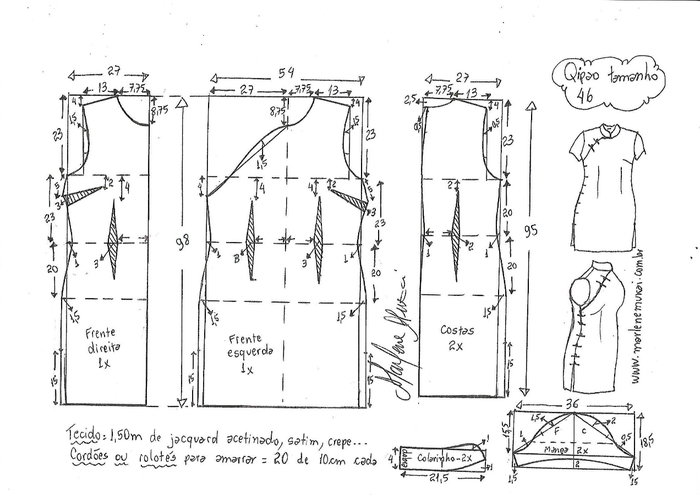 Qipao tamanho
46
27
13
7,75
4
1,5
8,75
23
5
2
4
3
23
1
3
20
1,5
15
Frente
direita
1x
98
54
27
7,75
13
8,75
4
1,5
23
1,5
4
4
2
5
3
23
1
3
1
20
1,5
15
Frente
esquerda
1x
27
7,75
13
2,5
4
23
4
20
1
2
1
20
1,5
15
Costas
2x
95
www.marlenemukai.com.br
36
15,5
1,5
F
C
2
1
0,5
18,5
Manga 2x
2
1,5
1,5
4
Colarinho-2x
1
1
21,5
Tecido = 1,50m de jacquard acetinado, satim, crepe...
Cordões ou rolotês para amarrar = 20 de 10cm cada